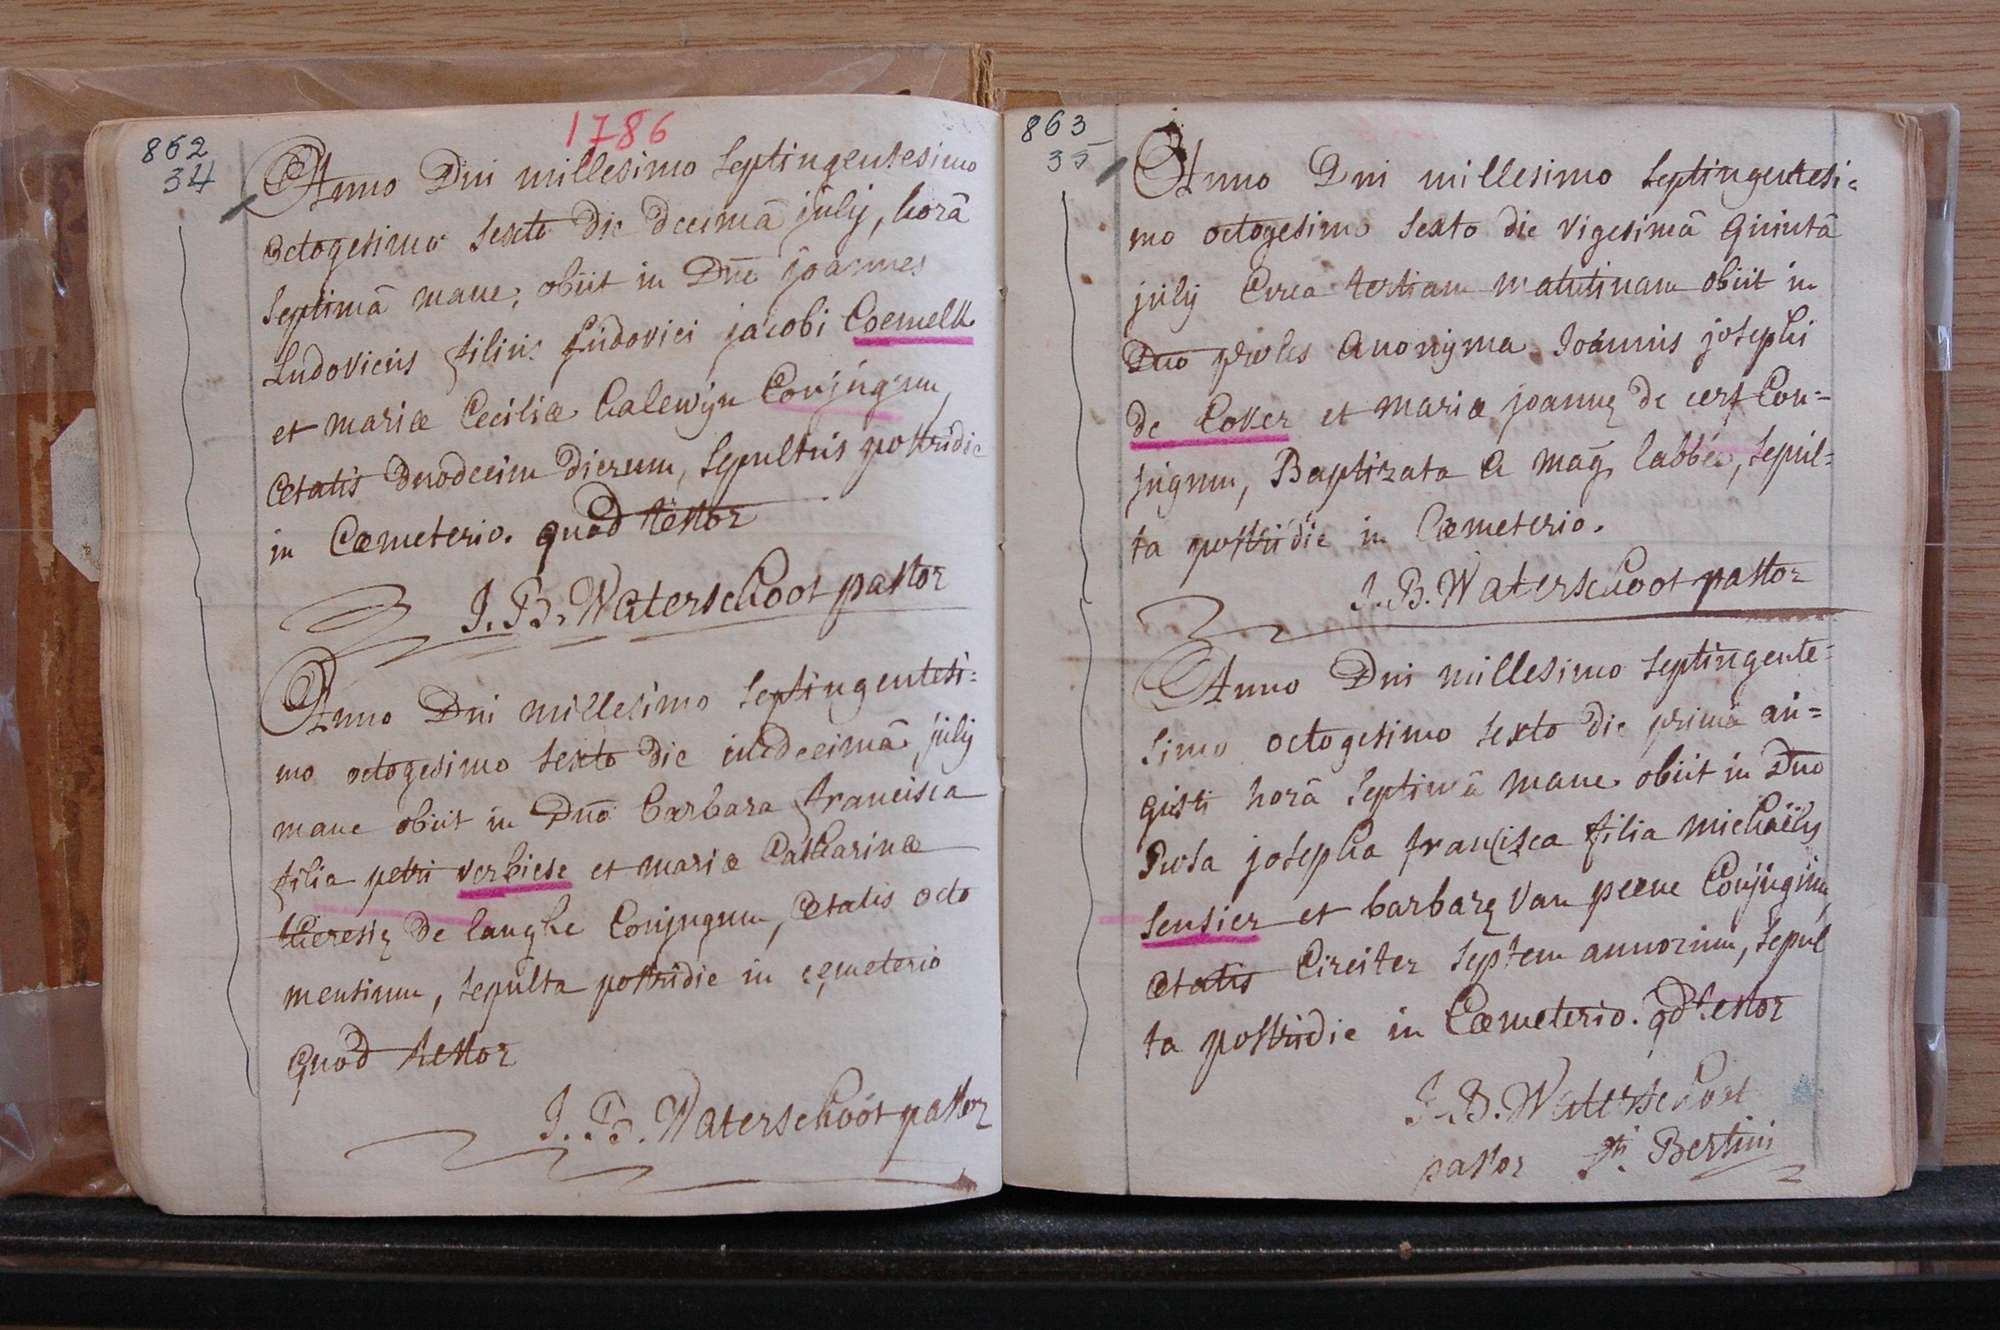 862
34
1786
Anno Dni millesimo septingentesimo
octogesimo sexto die decimâ julij, horâ
septimâ mane, obiit in Dno joannes
Ludovicus filius Ludovici jacobi Coemelk
et mariæ Ceciliæ Calewijn Conjugum,
ætatis duodecim dierum, sepultus postridie
in Cæmeterio. quod testor
J. B. Waterschoot pastor
Anno Dni millesimo septingentesi=
mo octogesimo sexto die undecimâ julij
mane obiit in Dno barbara francisca
filia petri verbiese et mariæ Catharinæ
theresię de langhe Conjugum, ætatis octo
mensium, sepulta postridie in cęmeterio
quod testor
J. B. Waterschoot pastor
863
35
Anno Dni millesimo septingentesi=
mo octogesimo sexto die vigesimâ quintâ
julij circa tertiam matutinam obiit in
Dno proles anonyma Joannis josephi
de Cover et mariæ joannę de cerf Con=
jugum, Baptizata a mag labbée, sepul=
ta postridie in Cæmeterio.
J. B. Waterschoot pastor
Anno Dni millesimo septingente=
simo octogesimo sexto die primâ au=
gusti horâ septimâ mane obiit in Dno
Rosa josepha francisca filia michaëlis
sensier et barbarę van peene Conjugum,
ætatis circiter septem annorum, sepul
ta postridie in Cæmeterio. qd testor
J. B. Waterschoot
pastor Sti Bertini